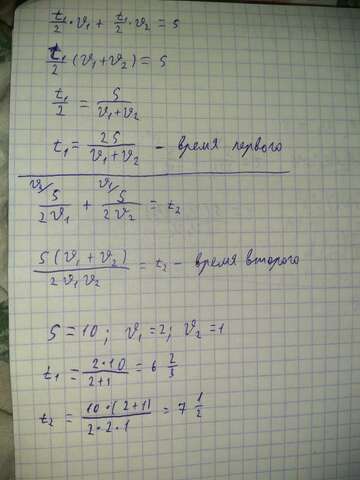 t₁/2 · v₁ + t₁/2 · v₂ = S
t₁/2 (v₁ + v₂) = S
t₁/2 = S/(v₁+v₂)
t₁ = 2S/(v₁+v₂) - время первого
v₂/ S/2v₁ + v₁/ S/2v₂ = t₂
S(v₁ + v₂)/2v₁v₂ = t₂ - время второго
S = 10; v₁ = 2; v₂ = 1
t₁ = 2·10/2+1 = 6 2/3
t₂ = 10·(2+1)/2·2·1 = 7 1/2